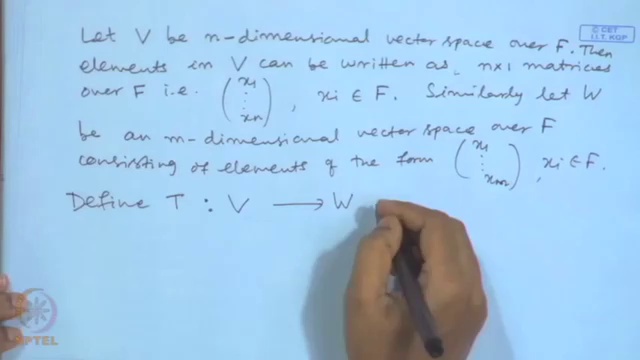 © CET
I.I.T. KGP
Let V be n-dimensional vector space over F. Then
elements in V can be written as, n×1 matrices
over F i.e. (x₁ ⋮ xₙ), xi ∈ F. Similarly let W
be an m-dimensional vector space over F
consisting of elements of the form (x₁ ⋮ xₘ), xi ∈ F.
Define T : V ⟶ W
NPTEL